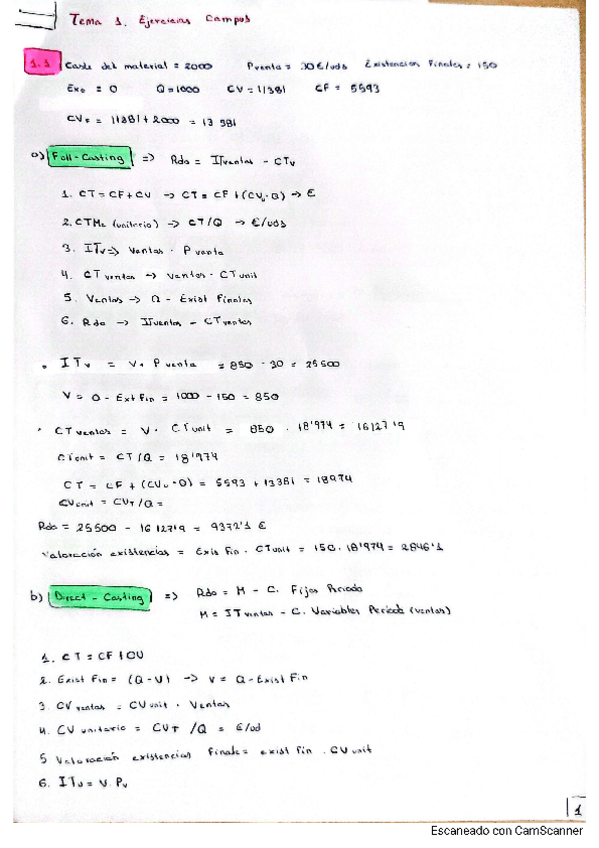 Tema 1. Ejercicios Campus
1.1 Coste del material = 2000 Pventa = 30€/uds Existencias Finales = 150
Exo = 0 Q=1000 CV = 11381 CF = 5593
CVT = 11381 + 2000 = 13 381
a) Full-Costing => Rdo = ITventas - CTv
1. CT = CF + CV -> CT = CF + (CVu · Q) -> €
2. CTMe (unitario) -> CT/Q -> €/uds
3. ITv => Ventas · Pventa
4. CT ventas -> ventas · CTunit
5. Ventas -> Q - Exist Finales
6. Rdo -> ITventas - CTventas
• ITv = V · P venta = 850 · 30 = 25500
V = Q - Ext Fin = 1000 - 150 = 850
• CT ventas = V · CTunit = 850 · 18'974 = 16127'9
CTunit = CT/Q = 18'974
CT = CF + (CVu · Q) = 5593 + 13381 = 18974
CVunit = CVT/Q =
Rdo = 25500 - 16127'9 = 9372'1 €
Valoración existencias = Exis Fin · CTunit = 150 · 18'974 = 2846'1
b) Direct - Costing => Rdo = M - C. Fijos Periodo
M = ITventas - C. Variables Periodo (ventas)
1. CT = CF + CV
2. Exist Fin = (Q - V) -> V = Q - Exist Fin
3. CV ventas = CV unit · Ventas
4. CV unitario = CVT / Q = €/ud
5 Valoración existencias Finales = exist fin · CV unit
6. ITv = V · Pv
1
Escaneado con CamScanner